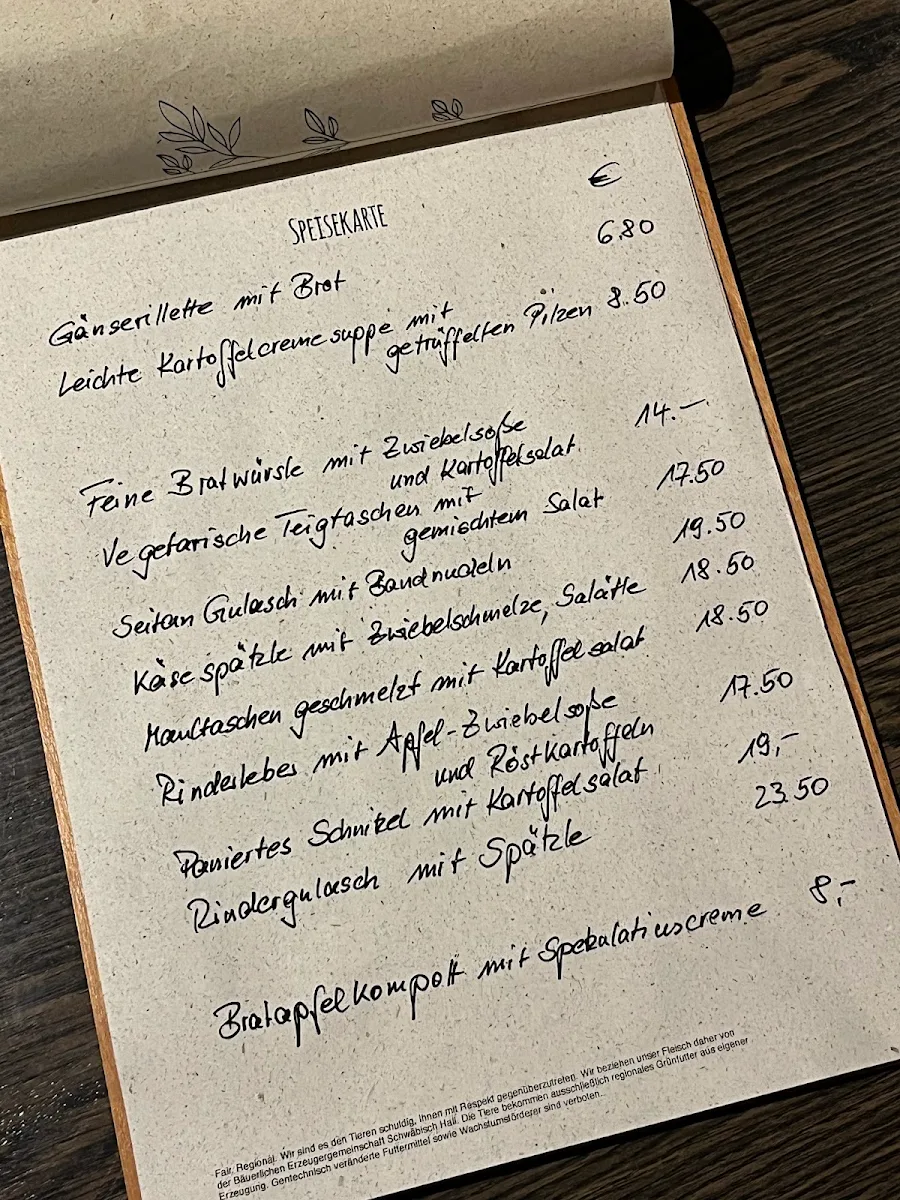 €
SPEISEKARTE
Gänserillette mit Brot 6.80
Leichte Kartoffelcremesuppe mit
getrüffelten Pilzen 8.50
Feine Bratwürste mit Zwiebelsoße 14.–
und Kartoffelsalat
Vegetarische Teigtaschen mit 17.50
gemischtem Salat
Seitan Gulasch mit Bandnudeln 19.50
Käsespätzle mit Zwiebelschmelze, Salätle 18.50
Maultaschen geschmelzt mit Kartoffelsalat 18.50
Rinderleber mit Apfel-Zwiebelsoße 17.50
und Röstkartoffeln
Paniertes Schnitzel mit Kartoffelsalat 19,-
Rindergulasch mit Spätzle 23.50
Bratapfelkompott mit Spekulatiuscreme 8,-
Fair. Regional. Wir sind es den Tieren schuldig, Ihnen mit Respekt gegenüberzutreten. Wir beziehen unser Fleisch daher von
der Bäuerlichen Erzeugergemeinschaft Schwäbisch Hall. Die Tiere bekommen ausschließlich regionales Grünfutter aus eigener
Erzeugung. Gentechnisch veränderte Futtermittel sowie Wachstumsförderer sind verboten.